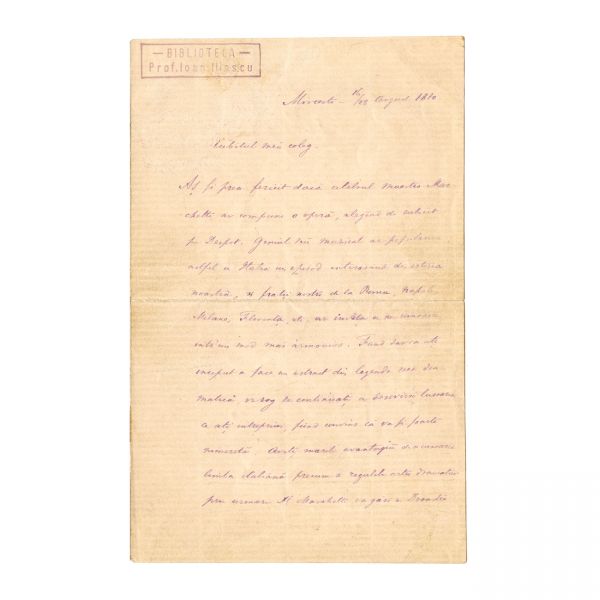 — BIBLIOTECA —
Prof. Ioan Iliescu
Mircesti – 16/28 August 1880
Iubitul meŭ coleg.
Aș fi prea fericit dacă celebrul maestro Mar
chetti ar compune o operă, alegênd de subiect
pe Despot. Geniul seŭ muzical ar populariza
astfel în Italia un episod interesant din istoria
noastră, și frații nostri de la Roma, Napoli
Milano, Florența, etc. ar învăța a ne cunoasce
intr'un mod mai armonios. Fiind dar că ați
inceput a face un estract din legenda mea dra
matică vĕ rog se continuați a
ce ați intreprins, fiind convins că va fi foarte
nemerită. Aveți marele avantagiu de a cunoasce
limba italiană precum și regulele artei dramatice
prin urmare Dl Marchetti va găsi